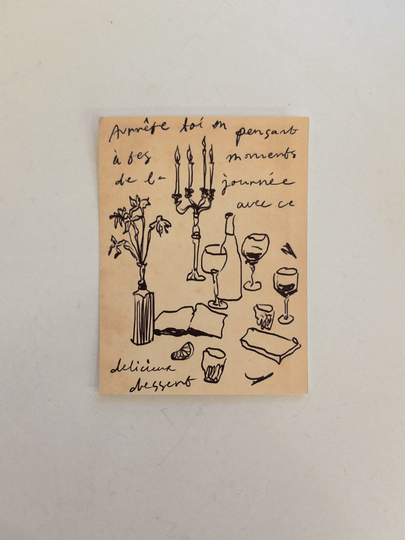 Arrrête toi en pensant
à tes moments
de la journée
avec ce
delicieux
dessert